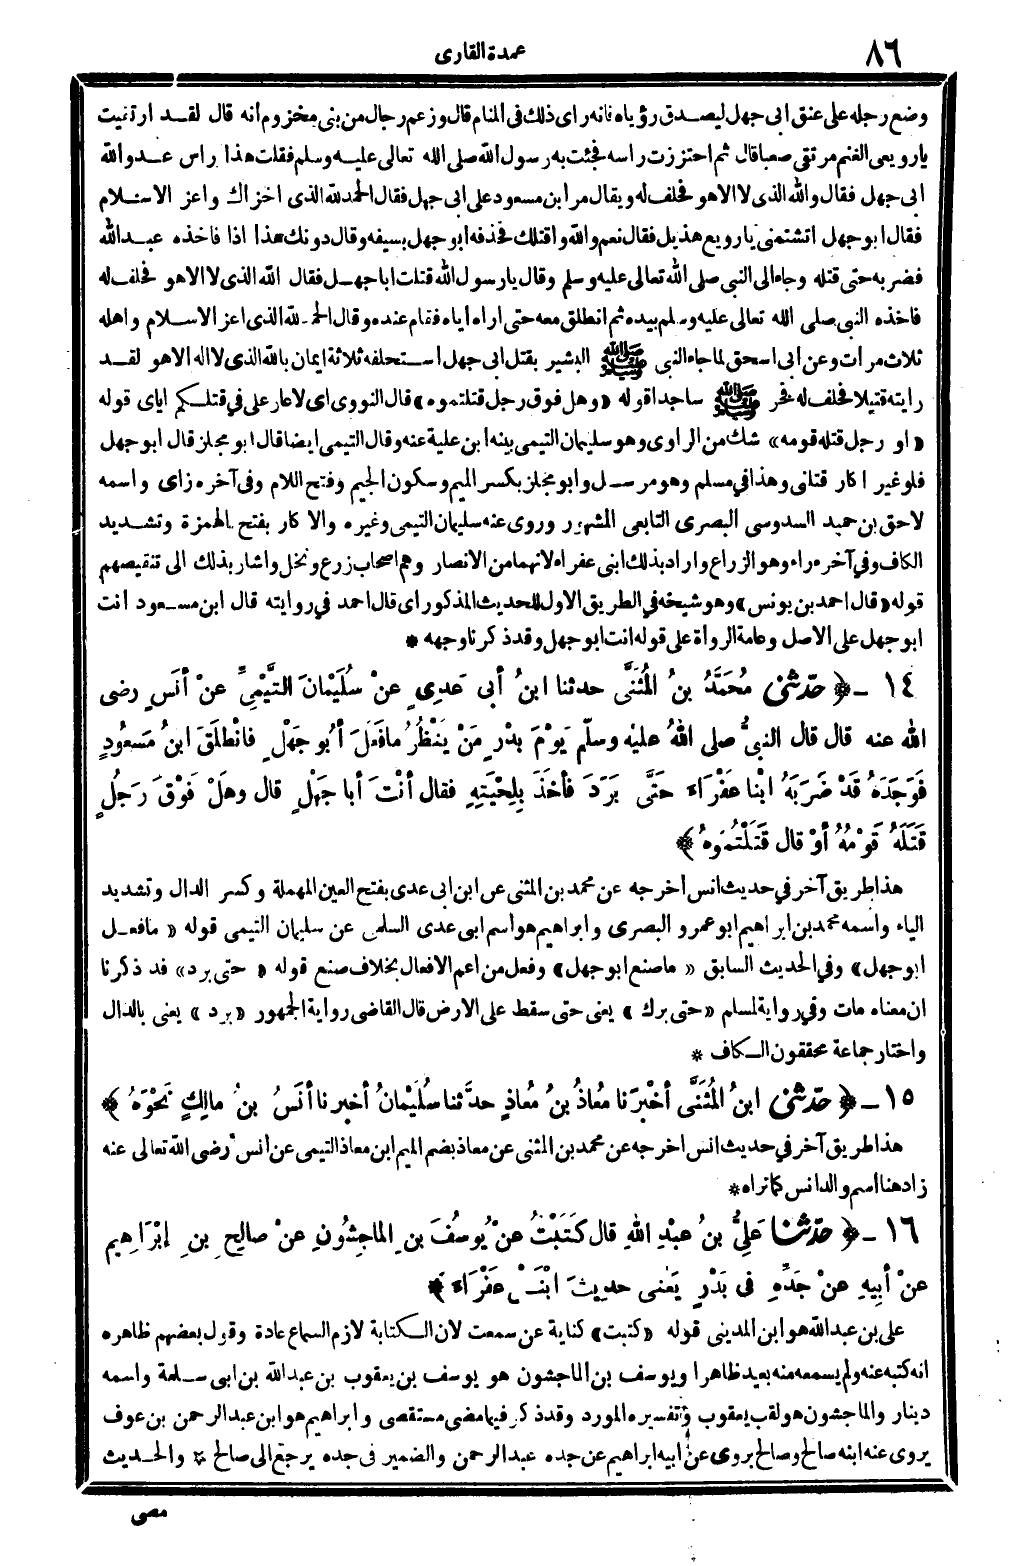 ٨٦
عمدة القارى
وضع رجله على عنق ابى جهل ليصدق رؤياه فانه راى ذلك فى المنام قال وزعم رجال من بنى مخزوم انه قال لقد ارتقيت
يارويعى الغنم مرتقى صعبا قال ثم احتززت راسه فجئت به رسول الله صلى الله تعالى عليه وسلم فقلت هذا راس عدو الله
ابى جهل فقال والله الذى لا اله الا هو فحلف له ويقال مر ابن مسعود على ابى جهل فقال الحمد لله الذى اخزاك واعز الاسلام
فقال ابو جهل اتشتمنى يارويع هذيل فقال نعم والله واقتلك فحذفه ابو جهل بسيفه وقال دونك هذا اذا فاخذه عبد الله
فضربه حتى قتله وجاء الى النبى صلى الله تعالى عليه وسلم وقال يارسول الله قتلت ابا جهل فقال الله الذى لا اله الا هو فحلف له
فاخذه النبى صلى الله تعالى عليه وسلم بيده ثم انطلق معه حتى اراه اياه فقام عنده وقال الحمد لله الذى اعز الاسلام واهله
ثلاث مرات وعن ابى اسحق لما جاء النبى ﷺ البشير بقتل ابى جهل استحلفه ثلاثة ايمان بالله الذى لا اله الا هو لقد
رايته قتيلا فحلف له فخر ﷺ ساجدا قوله «وهل فوق رجل قتلتموه» قال النووى اى لا عار على فى قتلكم اياى قوله
«او رجل قتله قومه» شك من الراوى وهو سليمان التيمى بينه ابن علية عنه وقال التيمى ايضا قال ابو مجلز قال ابو جهل
فلو غير اكار قتلنى وهذا فى مسلم وهو مرسل وابو مجلز بكسر الميم وسكون الجيم وفتح اللام وفى آخره زاى واسمه
لاحق بن حميد السدوسى البصرى التابعى المشهور وروى عنه سليمان التيمى وغيره والاكار بفتح الهمزة وتشديد
الكاف وفى آخره راء وهو الزراع واراد بذلك ابنى عفراء لانهما من الانصار وهم اصحاب زرع ونخل واشار بذلك الى تنقيصهم
قوله «قال احمد بن يونس» وهو شيخه فى الطريق الاول للحديث المذكور اى قال احمد فى روايته قال ابن مسعود انت
ابو جهل على الاصل وعامة الرواة على قوله انت ابو جهل وقد ذكرنا وجهه *
١٤ ـ ﴿ حدّثنى مُحَمَّدُ بنُ المُثَنَّى حدثنا ابنُ أبى عَدِىٍ عنْ سُلَيْمَانَ التَّيْمِىِّ عنْ أنَسٍ رضى
الله عنه قال قال النبىُّ صلى اللهُ عليْه وسلَّم يَوْمَ بدْرٍ مَنْ يَنْظُرُ مافَعَلَ أبُو جَهْلٍ فانْطَلَقَ ابنُ مَسعُودٍ
فَوَجَدَهُ قدْ ضَرَبَهُ ابْنا عَفْرَاءَ حَتَّى بَرَدَ فأخَذَ بِلِحْيَتِهِ فقال أنْتَ أبا جَهْلٍ قال وهلْ فَوْقَ رَجُلٍ
قَتَلَهُ قَوْمُهُ أوْ قال قَتَلْتُمُوهُ ﴾
هذا طريق آخر فى حديث انس أخرجه عن محمد بن المثنى عن ابن ابى عدى بفتح العين المهملة وكسر الدال وتشديد
الياء واسمه محمد بن ابراهيم ابو عمرو البصرى وابراهيم هو اسم ابى عدى السلمى عن سليمان التيمى قوله « ما فعل
ابو جهل» وفى الحديث السابق « ما صنع ابو جهل» وفعل من اعم الافعال بخلاف صنع قوله « حتى برد» قد ذكرنا
ان معناه مات وفى رواية لمسلم «حتى برك» يعنى حتى سقط على الارض قال القاضى رواية الجمهور «برد» يعنى بالدال
واختار جماعة محققون الكاف *
١٥ ـ ﴿ حدّثنى ابنُ المُثَنَّى أخْبرَنا مُعاذُ بنُ مُعاذٍ حدَّثنا سُلَيْمانُ أخبرنا أنَسُ بنُ مالِكٍ نَحْوَهُ ﴾
هذا طريق آخر فى حديث انس اخرجه عن محمد بن المثنى عن معاذ بضم الميم ابن معاذ التيمى عن انس رضى الله تعالى عنه
زاد هنا اسم والد انس كما تراه *
١٦ ـ ﴿ حدّثنا عَلِىُّ بنُ عبْدِ اللهِ قال كَتَبْتُ عنْ يُوسُفَ بنِ الماجِشُونِ عنْ صالِحِ بنِ إبْرَاهِيمَ
عنْ أبِيهِ عنْ جَدِّهِ فى بَدْرٍ يَعْنى حدِيثَ ابْنَىْ عَفْرَاءَ ﴾
على بن عبدالله هو ابن المدينى قوله «كتبت» كناية عن سمعت لان الكتابة لازم السماع عادة وقول بعضهم ظاهره
انه كتبه عنه ولم يسمعه منه بعيد ظاهرا ويوسف بن الماجشون هو يوسف بن يعقوب بن عبدالله بن ابى سلمة واسمه
دينار والماجشون هو لقب يعقوب وتفسيره المورد وقد ذكر فيما مضى مستقصى وابراهيم هو ابن عبدالرحمن بن عوف
يروى عنه ابنه صالح وصالح يروى عن ابيه ابراهيم عن جده عبدالرحمن والضمير فى جده يرجع الى صالح * والحديث
مضى